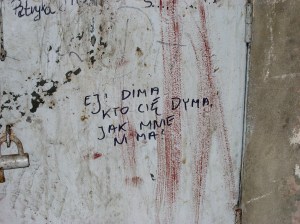 Patryka
S...
EJ! DIMA
KTO CIĘ DYMA,
JAK MNIE
NIMA!